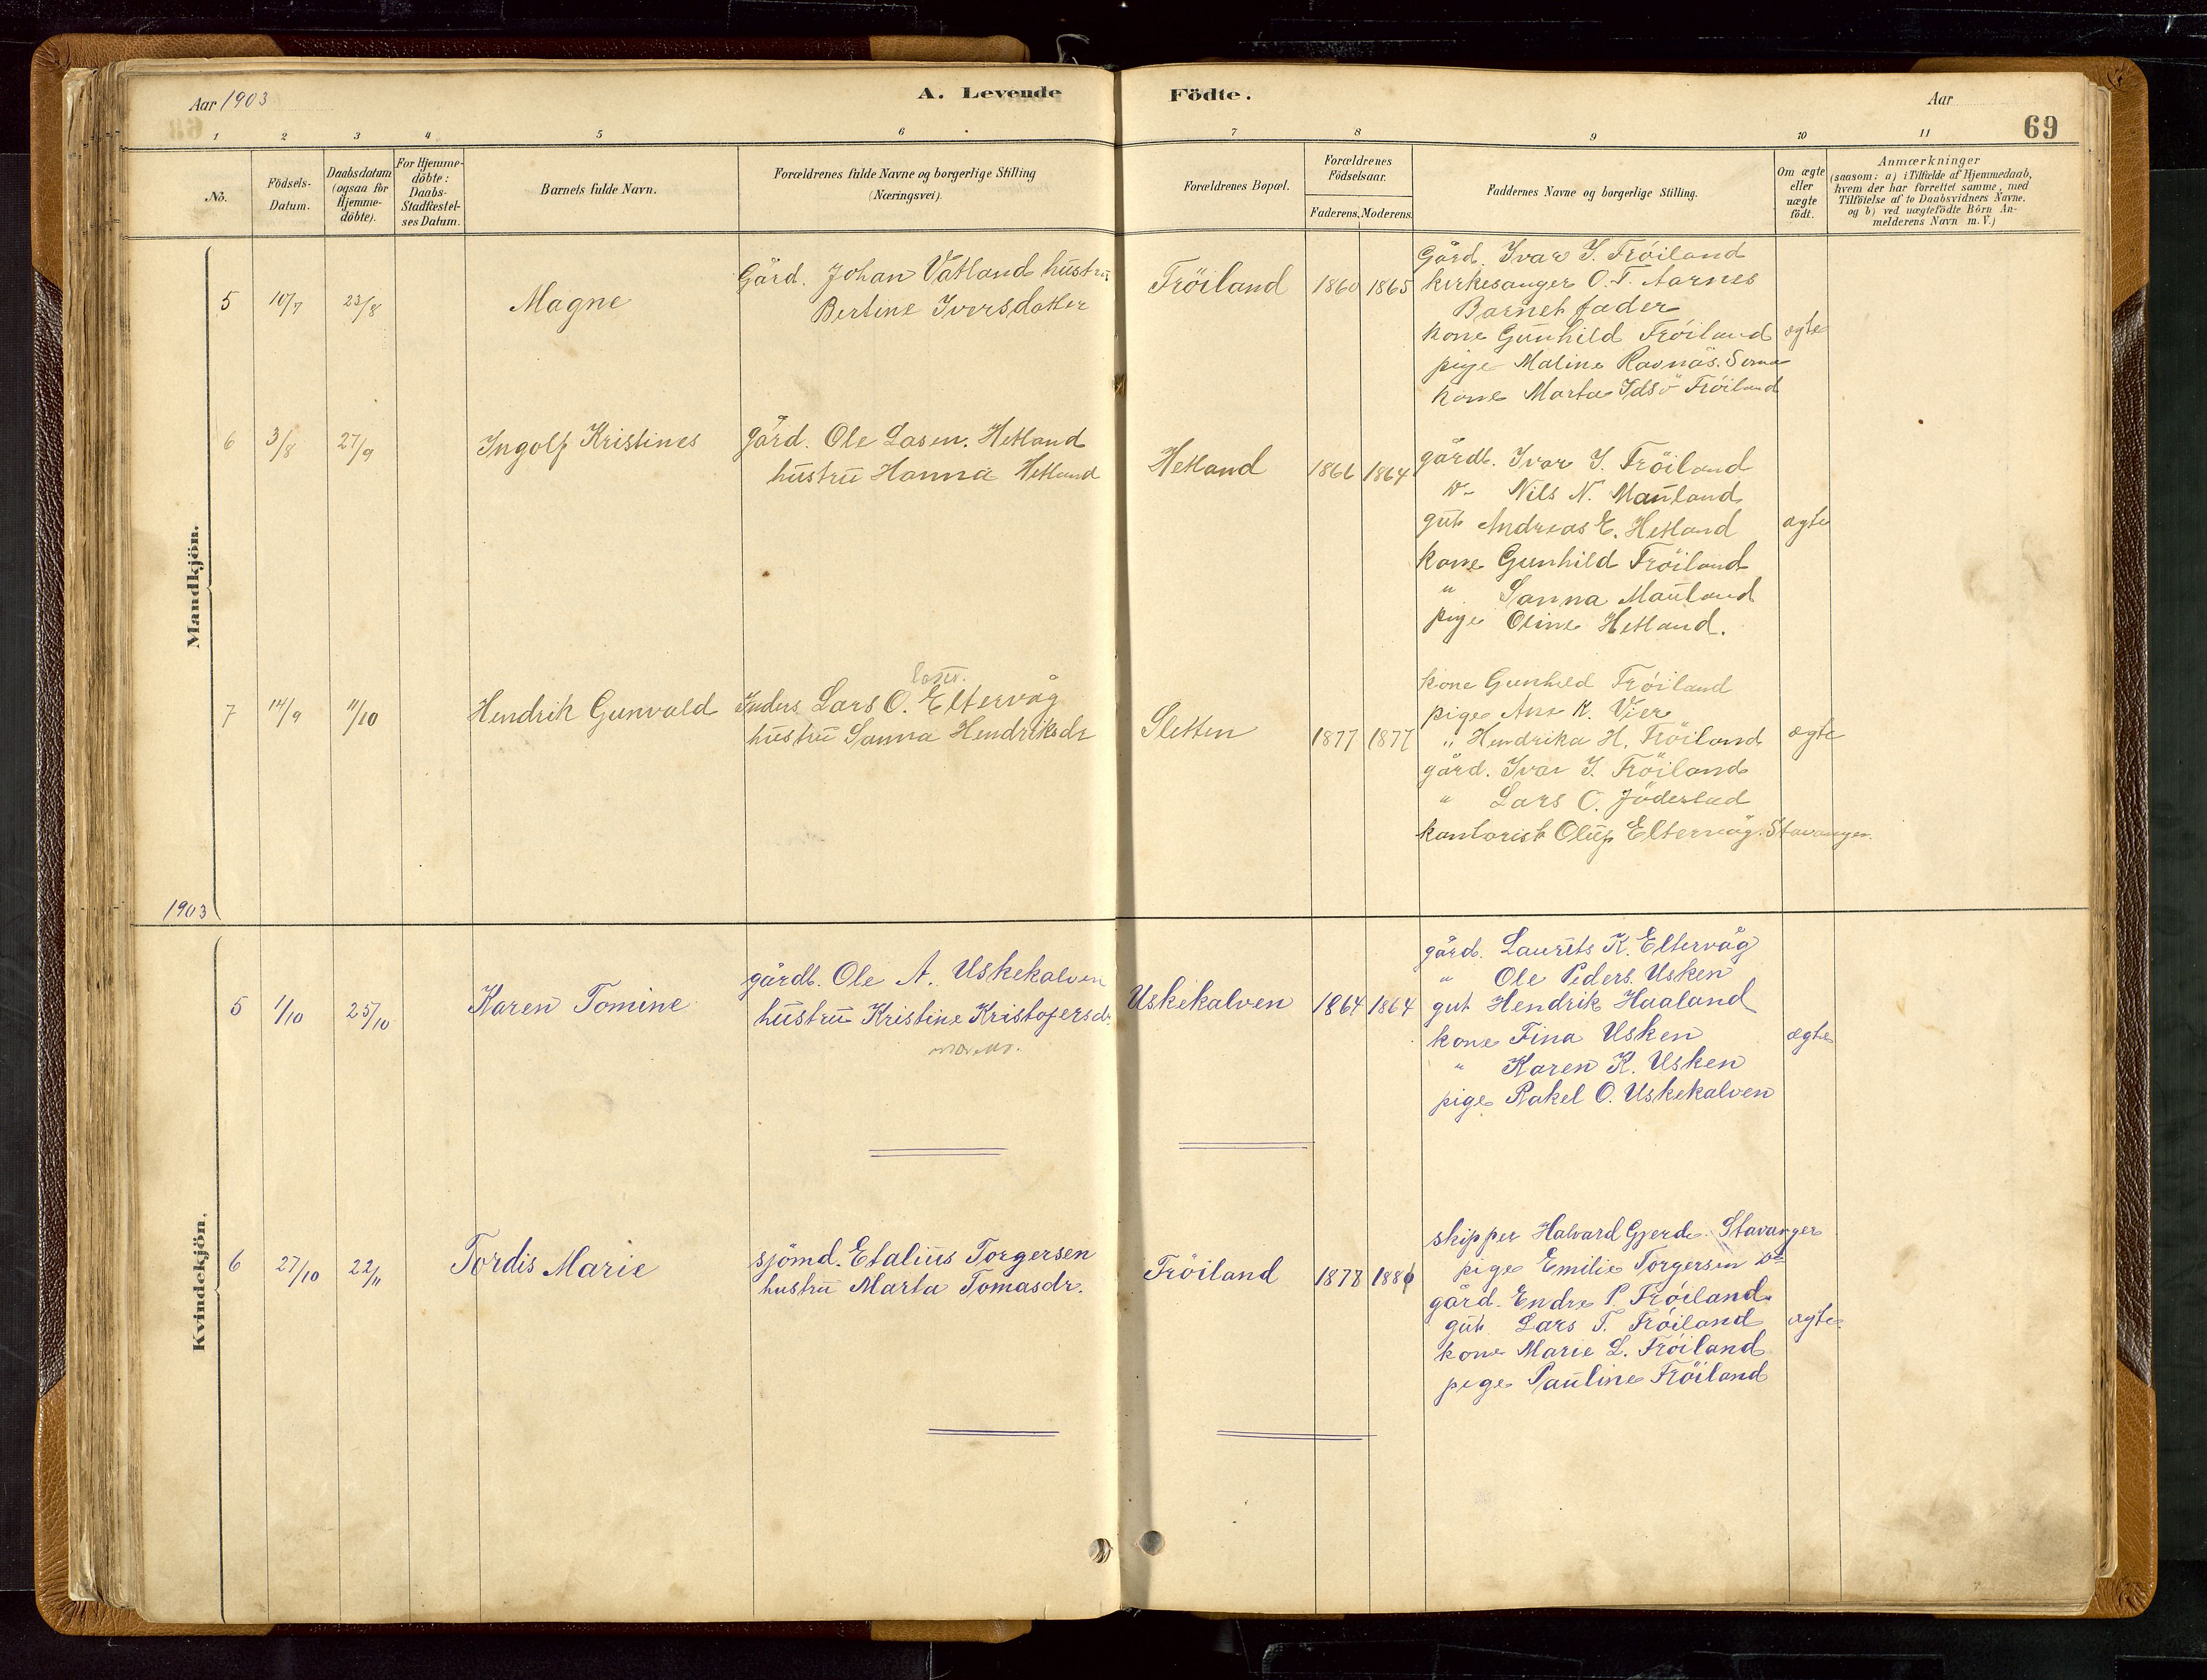 Aar 1903
A. Levende Födte.
Aar
69
1 2 3 4 5 6 7 8 9 10 11
No.
Födsels-Datum.
Daabsdatum (ogsaa for Hjemme-döbte).
For Hjemme-döbte: Daabs-Stadfæstel-ses Datum.
Barnets fulde Navn.
Forældrenes fulde Navne og borgerlige Stilling (Næringsvei).
Forældrenes Bopæl.
Forældrenes Födselsaar.
Faderens, Moderens.
Faddernes Navne og borgerlige Stilling.
Om ægte eller uægte födt.
Anmærkninger
(saasom: a) i Tilfælde af Hjemmedaab,
hvem der har forrettet samme, med
Tilföielse af to Daabsvidners Navne.
og b) ved uægtefödte Börn An-
melderens Navn m. V.)
Mandkjön.
5 10/7 23/8 Magne
Gård. Johan Vatland hustru
Bertine Iversdatter
Fröiland 1860 1865
Gård. Ivar I. Fröiland
kirkesanger O. T. Aarnes
Barnet fader
kone Gunhild Fröiland ægte
pige Maline Ravnås. Soma
kone Marta Idsö Fröiland
6 3/8 27/9 Ingolf Kristines
gård. Ole Lasen. Hetland
hustru Hanna Hetland
Hetland 1866 1864
gårdb. Ivar I. Fröiland
Nils N. Mauland
gut Andreas E. Hetland ægte
kone Gunhild Fröiland
" Sanna Mauland
pige Oline Hetland.
7 14/9 11/10 Hendrik Gunvald
Inders. Lars O. Eltervåg
hustru Sanna Hendriksdr
Sletten 1877 1877
kone Gunhild Fröiland
pige Ane K. Vier
" Hendrika H. Fröiland ægte
gård. Ivar I. Fröiland
" Lars O. Jöderstad
kontorist Oluf Eltervåg. Stavanger.
1903
Kvindekjön.
5 1/10 25/10 Karen Tomine
gårdb. Ole A. Uskekalven
hustru Kristine Kristofersdr.
Uskekalven 1864 1864
gård. Laurits K. Eltervåg
" Ole Peders. Usken
gut Hendrik Haaland
kone Tina Usken ægte
" Karen K. Usken
pige Rakel O. Uskekalven
6 27/10 22/11 Tordis Marie
sjömd. Etalius Torgersen
hustru Marta Tomasdr.
Fröiland 1878 1880
skipper Halvard Gjerde. Stavanger
pige Emilie Torgersen Do
gård. Endre P Fröiland.
gut Lars T. Fröiland ægte
kone Marie L. Fröiland
pige Pauline Fröiland